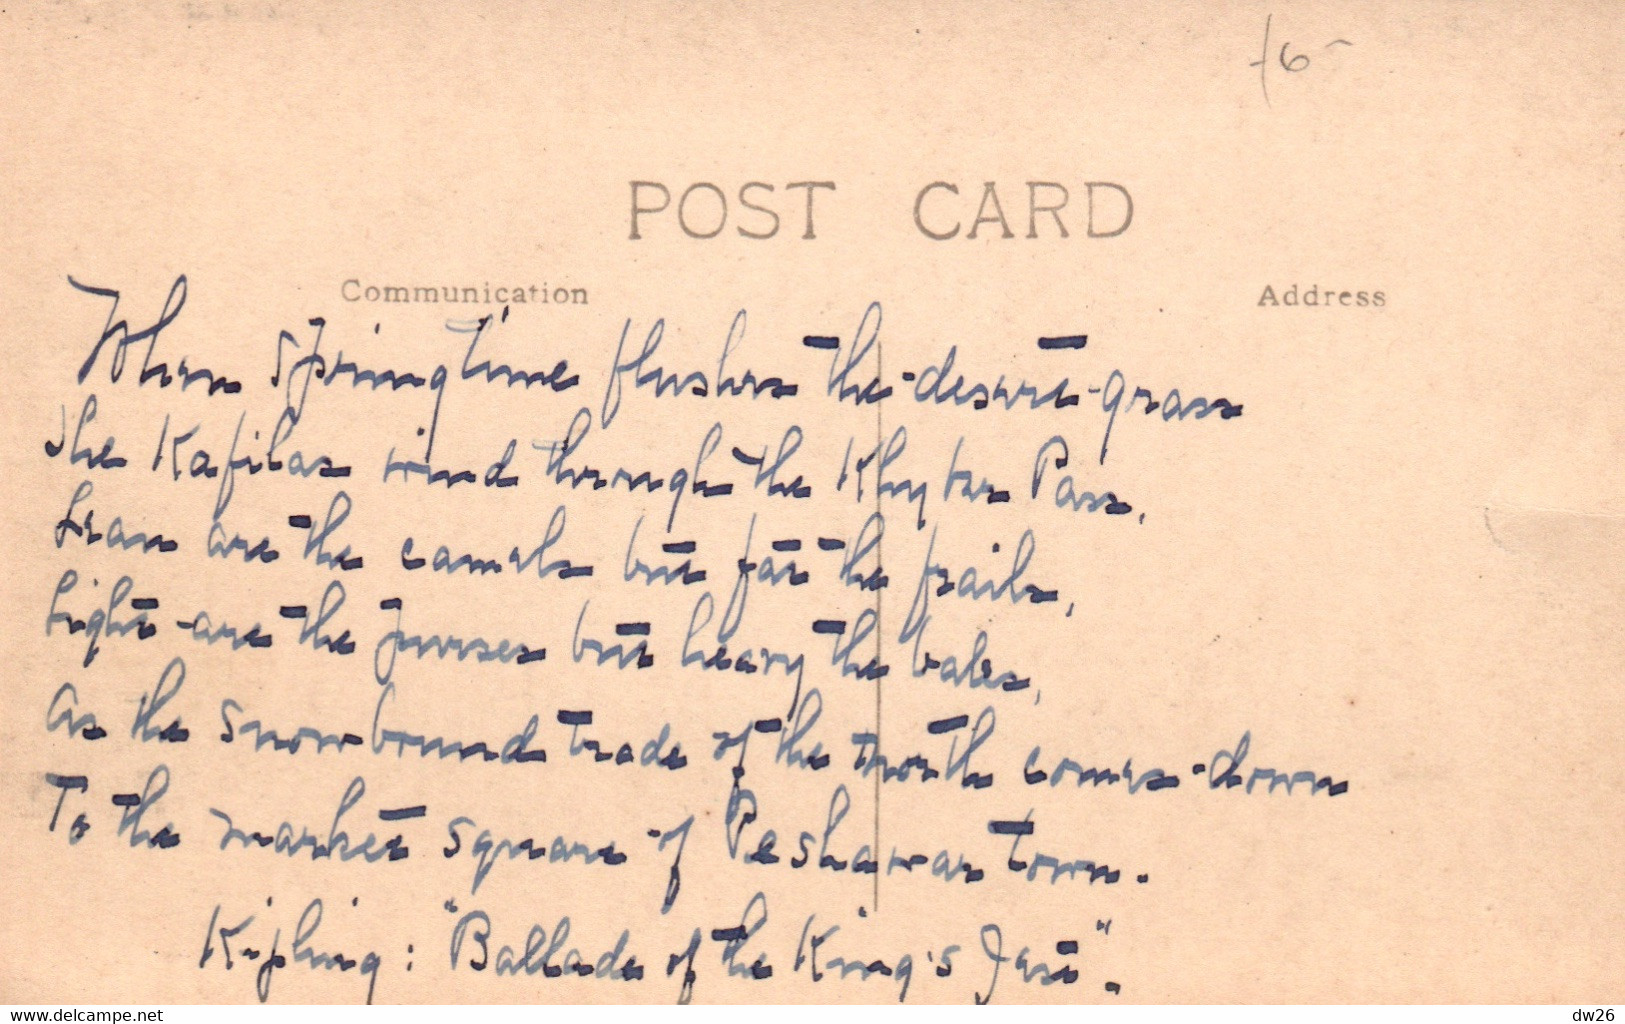 /6-
POST CARD
Communication
Address
When Springtime flushes the desert grass
The Kafilas wind through the Khyber Pass,
Lean are the camels but fat the frails,
Light are the purses but heavy the bales,
As the snowbound trade of the north comes down
To the market square of Peshawar town.
Kipling: "Ballade of the King's Jest".
www.delcampe.net
dw26